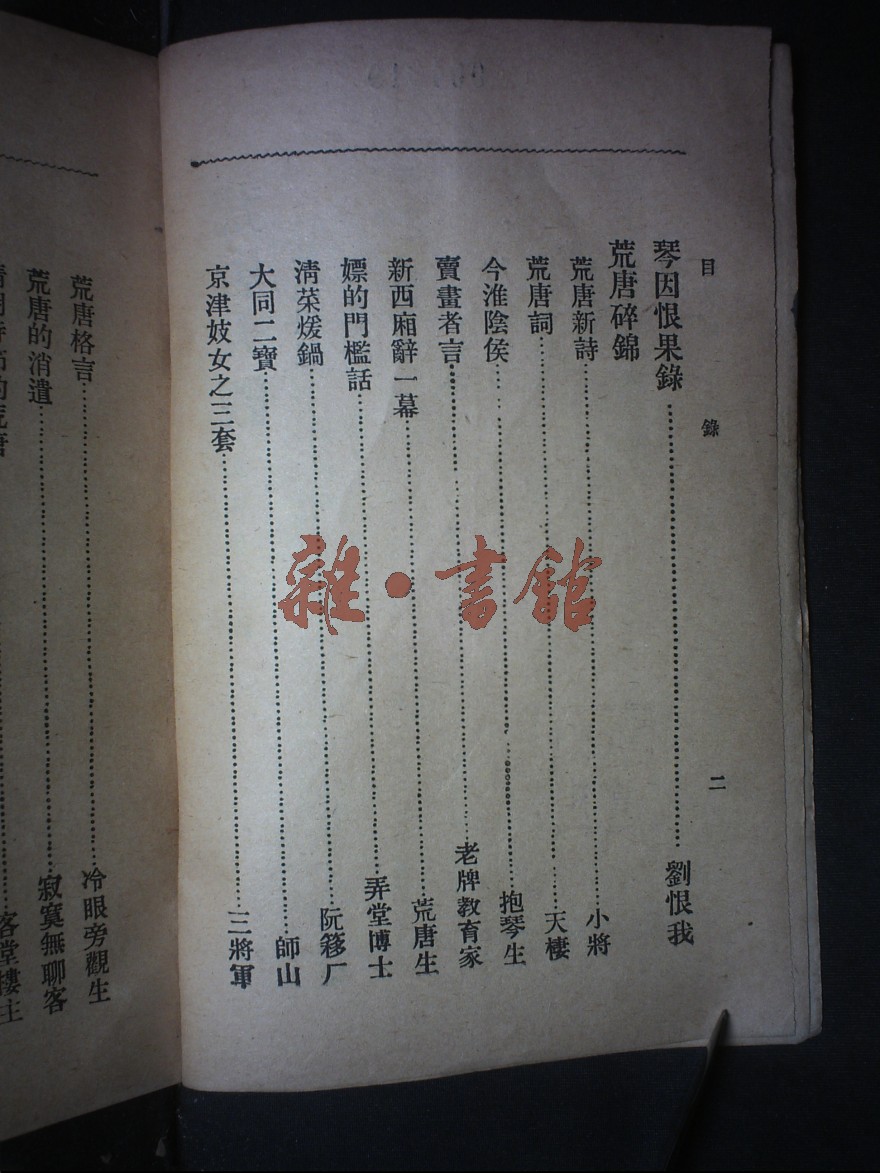 目錄 二
琴因恨果錄 劉恨我
荒唐碎錦
荒唐新詩 小將
荒唐詞 天棲
今淮陰侯 抱琴生
賣畫者言 老牌教育家
新西廂辭一幕 荒唐生
嫖的門檻話 弄堂博士
淸菜煖鍋 阮簃厂
大同二寶 師山
京津妓女之三套 三將軍
荒唐格言 冷眼旁觀生
荒唐的消遣 寂寞無聊客
的荒唐 客堂樓主
雜·書館